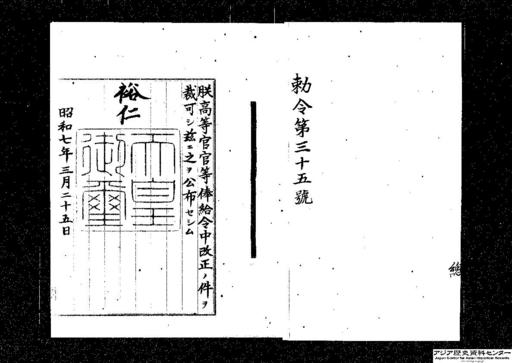 勅令第三十五號
總
朕高等官官等俸給令中改正ノ件ヲ
裁可シ茲ニ之ヲ公布セシム
裕仁
天皇
御璽
昭和七年三月二十五日
アジア歴史資料センター
Japan Center for Asian Historical Records